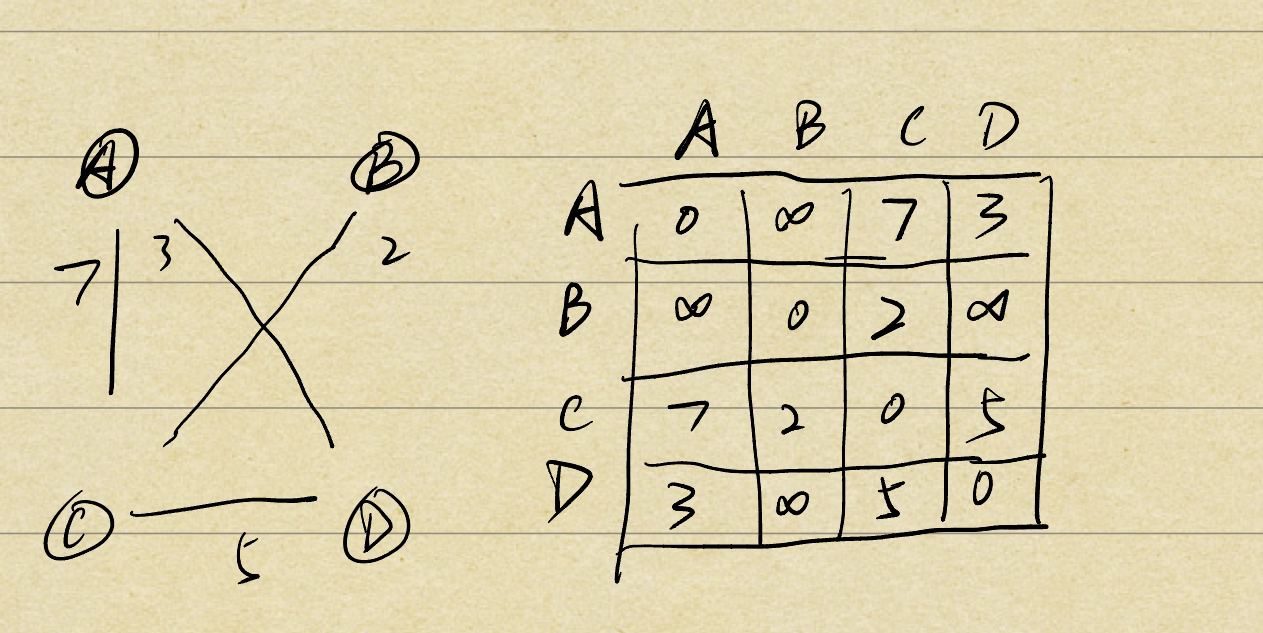 A B
7 3 2
C D
5
A B C D
A 0 ∞ 7 3
B ∞ 0 2 ∞
C 7 2 0 5
D 3 ∞ 5 0